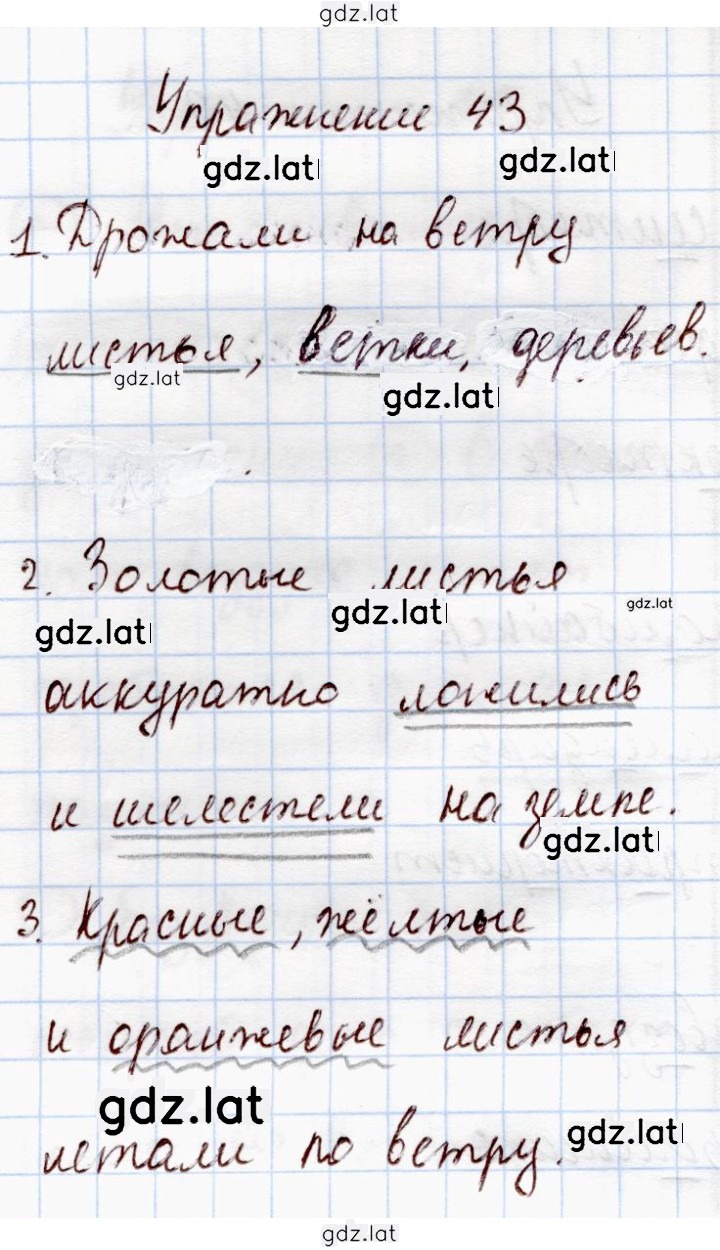 gdz.lat
Упражнение 43
gdz.lat gdz.lat
1. Дрожали на ветру
листья, ветки, деревьев.
gdz.lat
gdz.lat
2. Золотые листья
gdz.lat
gdz.lat
gdz.lat
аккуратно ложились
и шелестели на земле.
gdz.lat
3. Красные, жёлтые
и оранжевые листья
gdz.lat
gdz.lat
летали по ветру.
gdz.lat